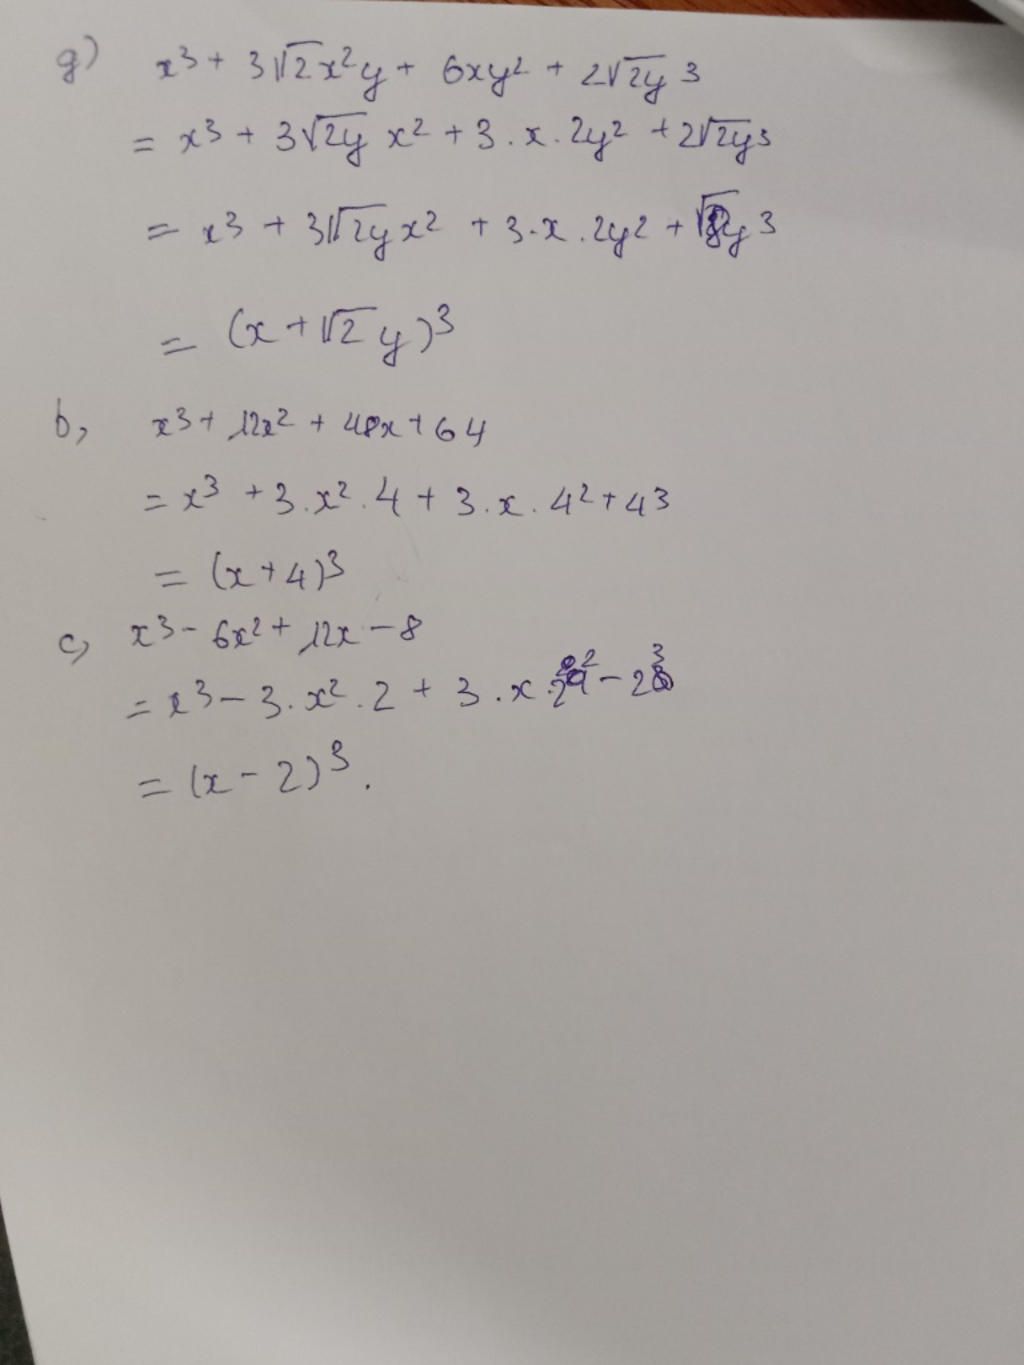 g) x³ + 3√2x²y + 6xy² + 2√2y3
= x³ + 3√2y x² + 3.x.2y² + 2√2y³
= x³ + 3√2y x² + 3.x.2y² + √8y3
= (x + √2 y)³
b, x³ + 12x² + 48x + 64
= x³ + 3.x².4 + 3.x.4² + 4³
= (x + 4)³
c, x³ - 6x² + 12x - 8
= x³ - 3.x².2 + 3.x.2² - 2³
= (x - 2)³.